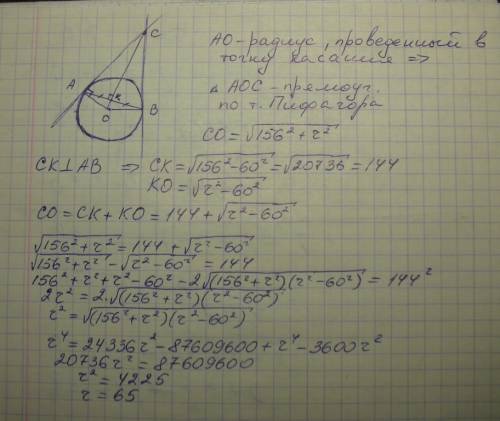 C
A
K
O
B
АО-радиус, проведенный в
точку касания =>
△ АОС - прямоуг.
по т. Пифагора
CO = √156² + r²
CK⊥AB => CK = √156² - 60² = √20736 = 144
KO = √r² - 60²
CO = CK + KO = 144 + √r² - 60²
√156² + r² = 144 + √r² - 60²
√156² + r² - √r² - 60² = 144
156² + r² + r² - 60² - 2√(156² + r²)(r² - 60²) = 144²
2r² = 2·√(156² + r²)(r² - 60²)
r² = √(156² + r²)(r² - 60²)
r⁴ = 24336r² - 87609600 + r⁴ - 3600r²
20736r² = 87609600
r² = 4225
r = 65